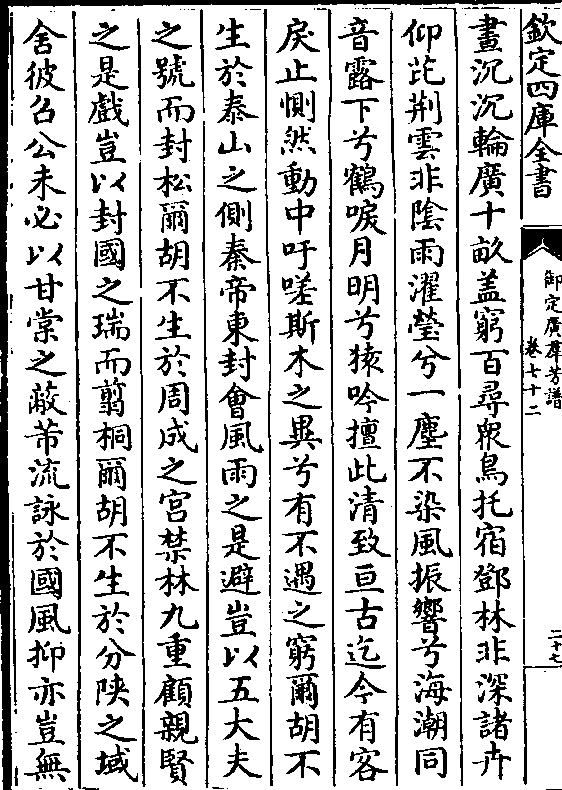 欽定四庫全書
御定廣羣芳譜
卷七十二
二十七
晝沉沉輪廣十畝盖窮百尋衆鳥托宿鄧林非深諸卉
仰芘荆雲非陰雨濯瑩兮一塵不染風振響兮海潮同
音露下兮鶴唳月明兮猿吟擅此清致亘古迄今有客
戾止惻然動中吁嗟斯木之異兮有不遇之窮爾胡不
生於泰山之側秦帝東封會風雨之是避豈以五大夫
之號而封松爾胡不生於周成之宮禁林九重顧親賢
之是戲豈以封國之瑞而翦桐爾胡不生於分陜之域
舍彼召公未必以甘棠之蔽芾流詠於國風抑亦豈無